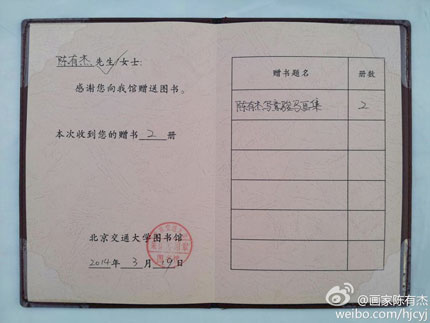 陈有杰 先生/女士:
感谢您向我馆赠送图书。
本次收到您的赠书 2 册
北京交通大学图书馆
2014年 3月 19日
赠书题名 册数
陈有杰写意骏马画集 2
@画家陈有杰
weibo.com/hjcyj